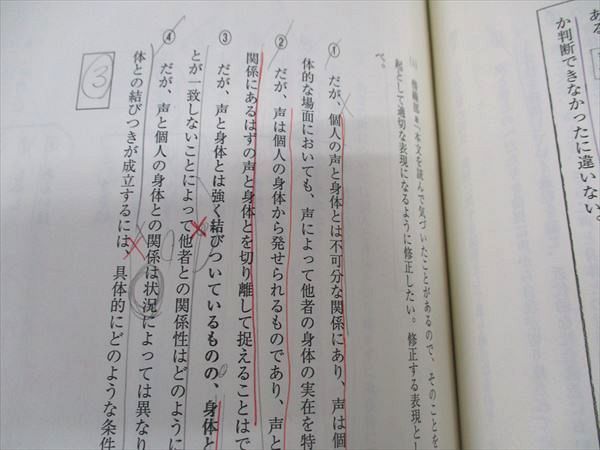 ある
か判断できなかったに違いない。
傍線部
「本文を読んで気づいたことがあるので、そのことを
として適切な表現になるように修正したい。修正する表現とし
べ。
① だが、個人の声と身体とは不可分な関係にあり、声は個
体的な場面においても、声によって他者の身体の実在を特
② だが、声は個人の身体から発せられるものであり、声と
関係にあるはずの声と身体とを切り離して捉えることはで
③ だが、声と身体とは強く結びついているものの、身体と
とが一致しないことによって他者との関係性はどのように
④ だが、声と個人の身体との関係は状況によっては異なり
体との結びつきが成立するには、具体的にどのような条件
③